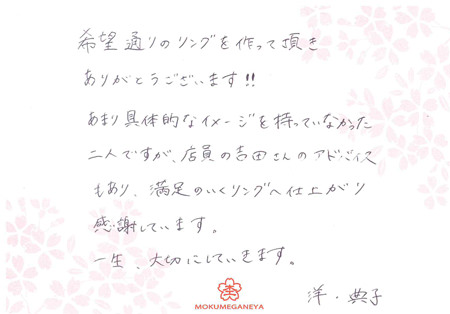 希望通りのリングを作って頂き
ありがとうございます!!
あまり具体的なイメージを持っていなかった
二人ですが、店員の吉田さんのアドバイス
もあり、満足のいくリングへ仕上がり
感謝しています。
一生、大切にしていきます。
洋・典子
MOKUMEGANEYA